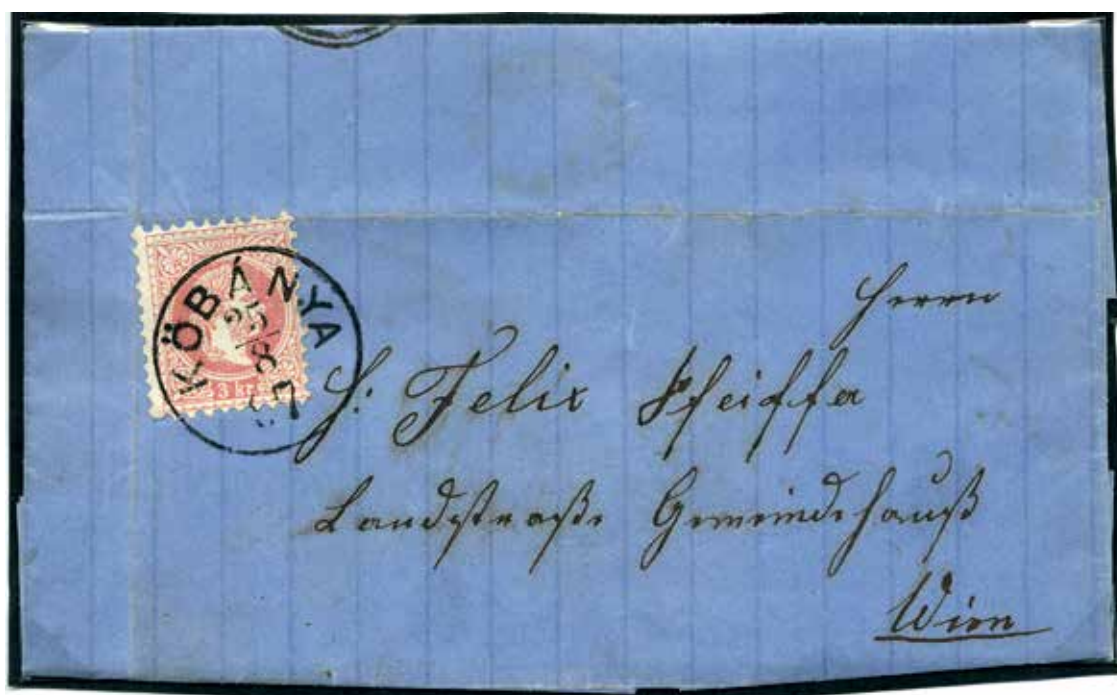 KÖBÁNYA
25/8
3 kr.
Herrn
H: Felix Pfeiffer
Landstraße Gemeindehauß
Wien